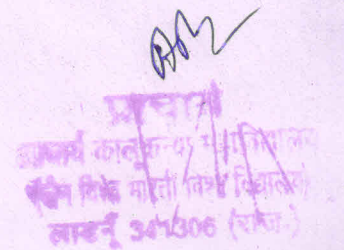 प्राचार्य
आचार्य कालू कन्या महाविद्यालय
जैन विश्व भारती विश्वविद्यालय
लाडनूँ 341306 (राज.)